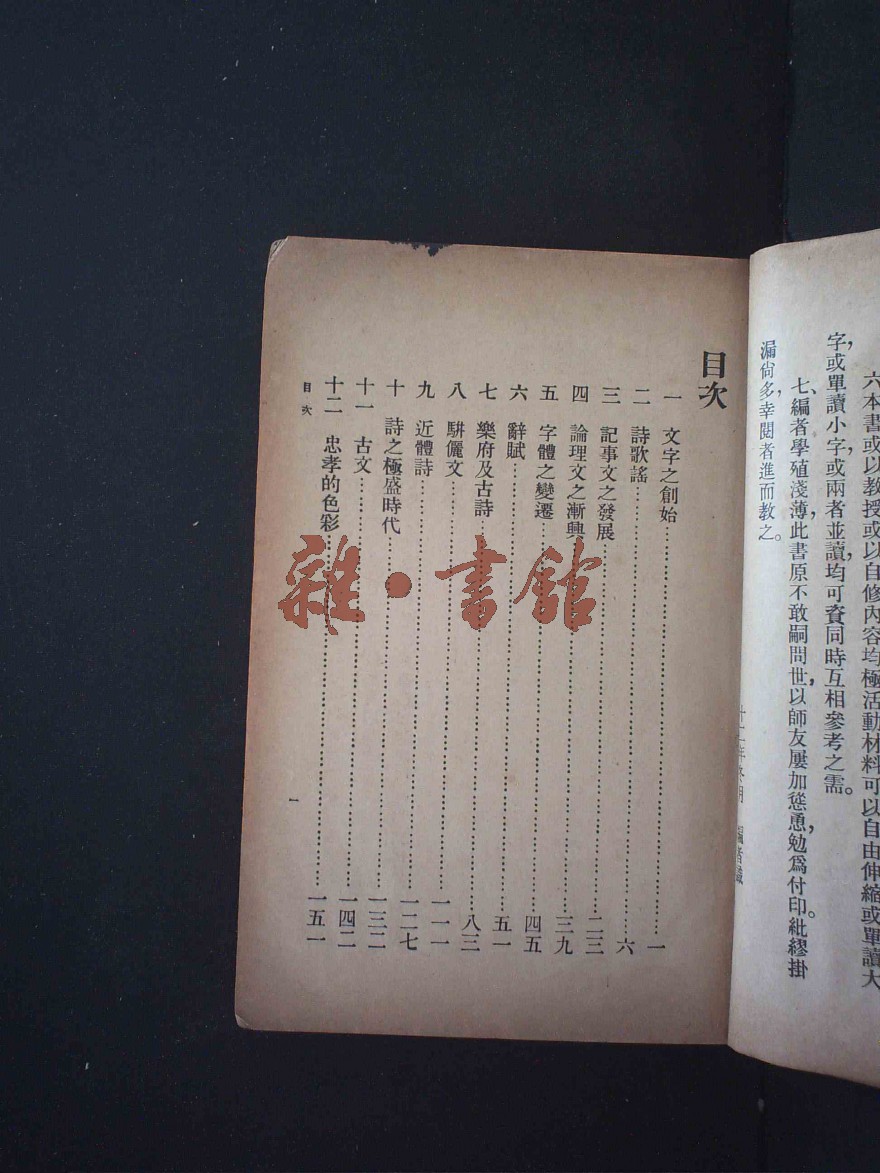 六本書或以教授或以自修內容均極活動材料可以自由伸縮或單讀大
字，或單讀小字，或兩者並讀，均可資同時互相參考之需。
七、編者學殖淺薄，此書原不敢嗣問世，以師友屢加慫恿，勉為付印。紕繆掛
漏尙多，幸閱者進而教之。
編者識
目次
一 文字之創始……一
二 詩歌謠……六
三 記事文之發展……二三
四 論理文之漸興……三九
五 字體之變遷……四五
六 辭賦……五一
七 樂府及古詩……八三
八 駢儷文……一一一
九 近體詩……一二七
十 詩之極盛時代……一三二
十一 古文……一四二
十二 忠孝的色彩……一五一
目次
一
雜·書館